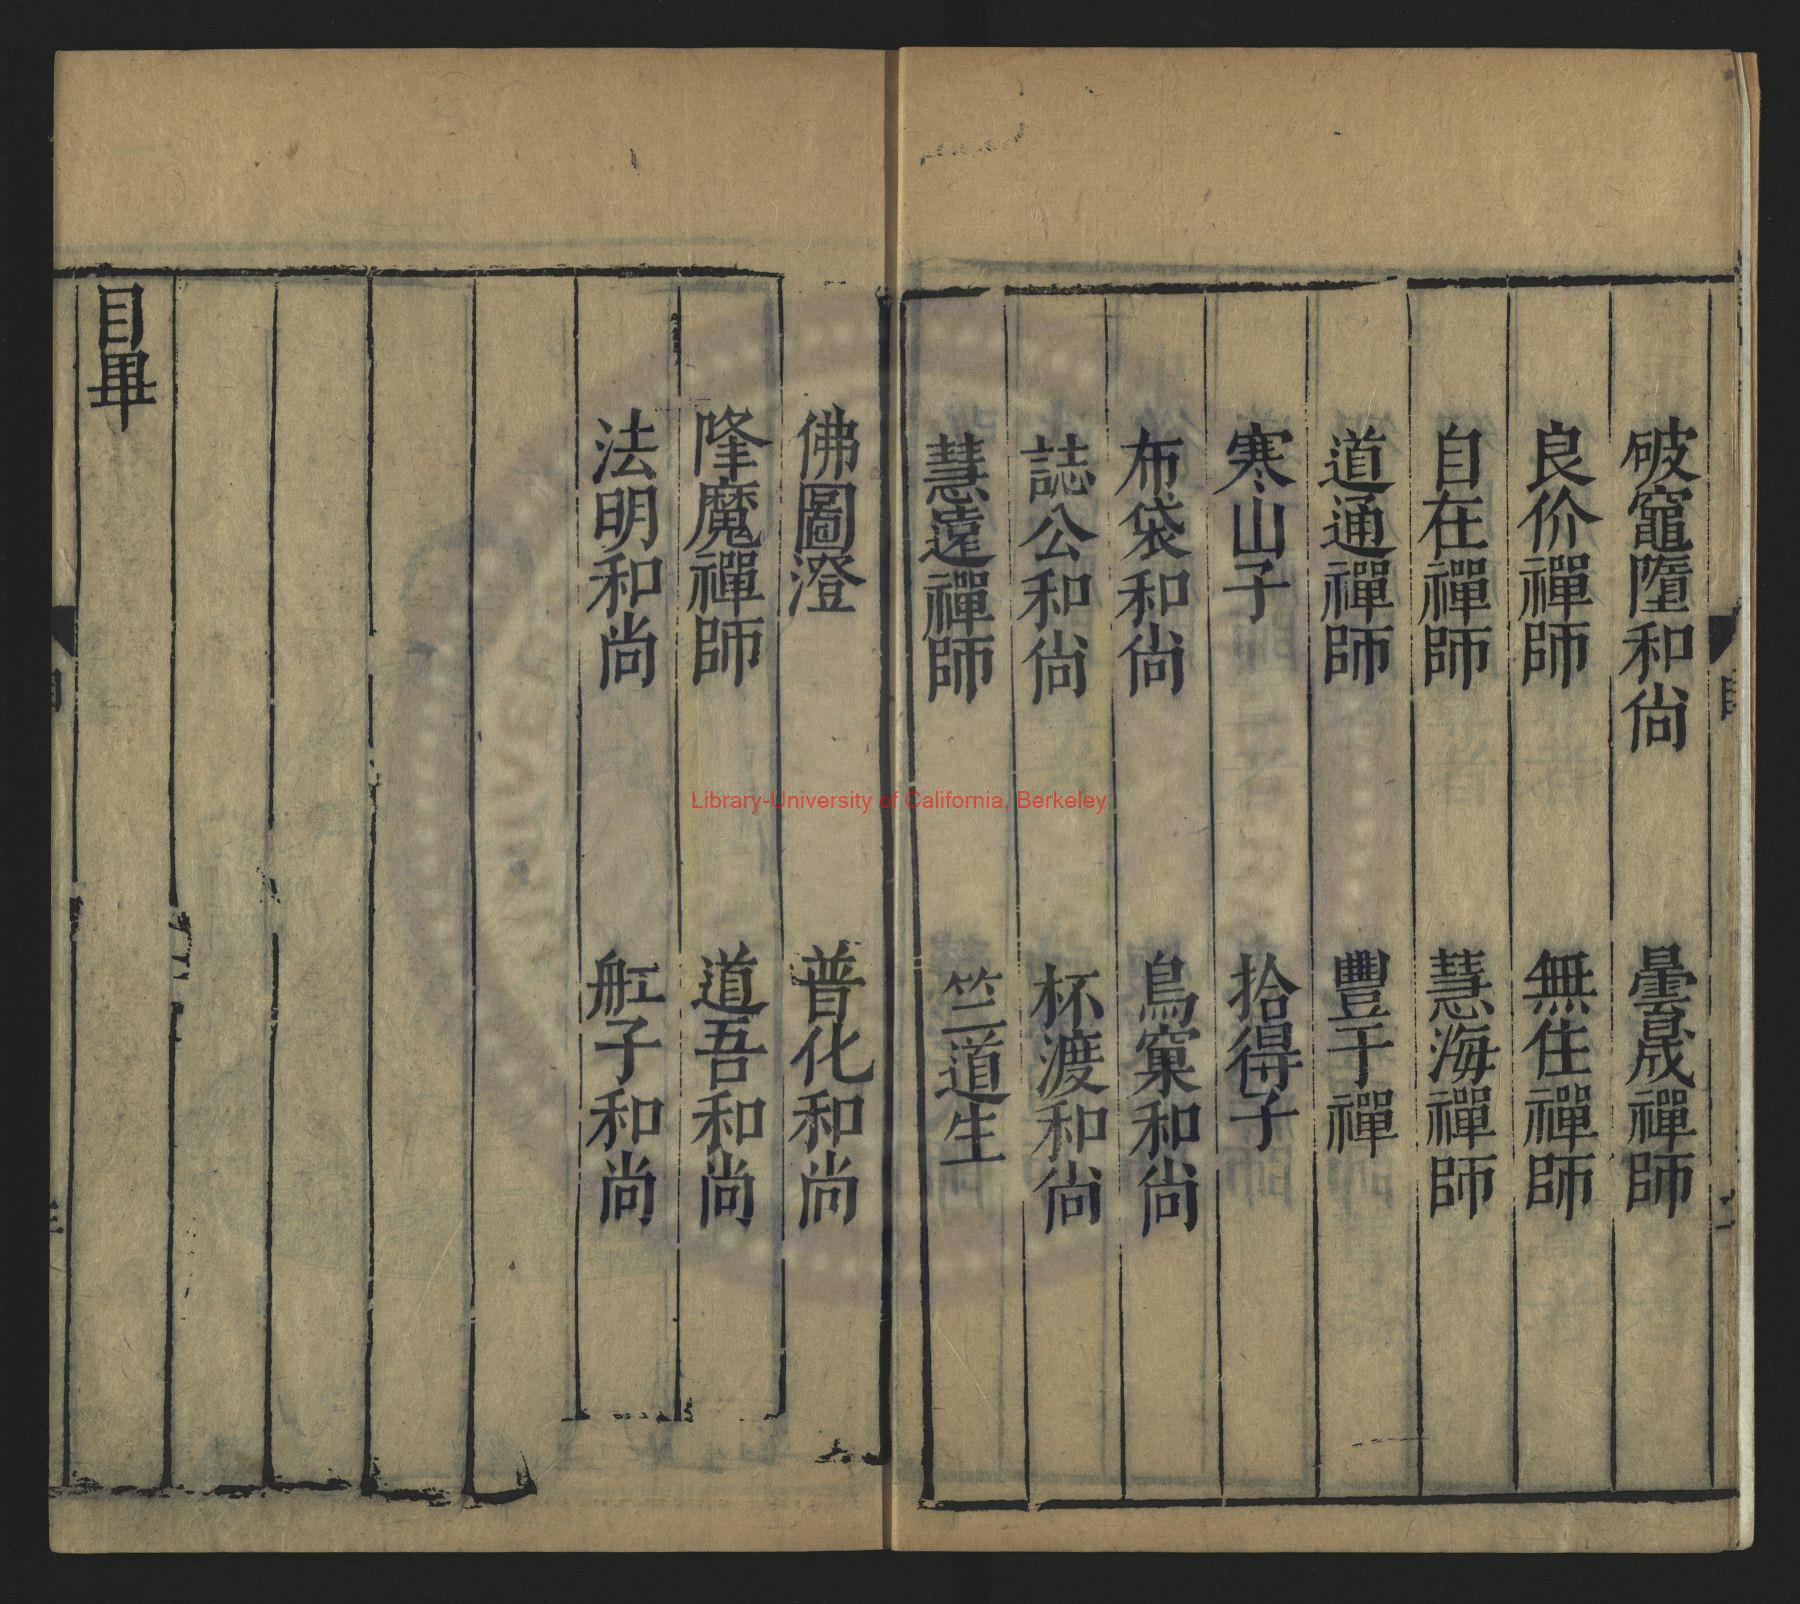 破竈墮和尙　曇晟禪師
良价禪師　無住禪師
自在禪師　慧海禪師
道通禪師　豐干禪
寒山子　拾得子
布袋和尙　鳥窠和尙
誌公和尙　杯渡和尙
慧遠禪師　竺道生
佛圖澄　普化和尚
降魔禪師　道吾和尚
法明和尚　船子和尚
目畢
Library-University of California, Berkeley